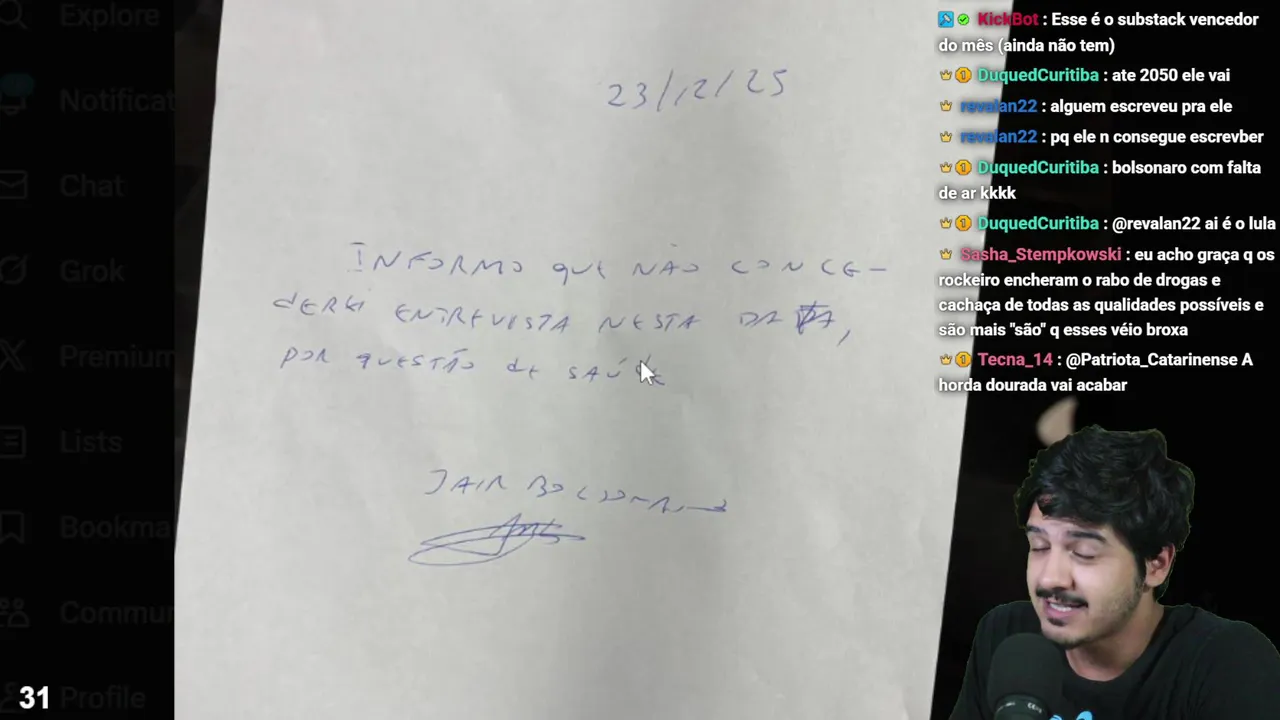 Explore
Notificat
Chat
Grok
Premium
Lists
Bookma
Commun
Profile
31
23/12/25
INFORMO QUE NÃO CONCE-
DEREI ENTREVISTA NESTA DATA,
POR QUESTÃO DE SAÚDE
JAIR BOLSONARO
KickBot : Esse é o substack vencedor
do mês (ainda não tem)
DuquedCuritiba : ate 2050 ele vai
revalan22 : alguem escreveu pra ele
revalan22 : pq ele n consegue escrevber
DuquedCuritiba : bolsonaro com falta
de ar kkkk
DuquedCuritiba : @revalan22 ai é o lula
Sasha_Stempkowski : eu acho graça q os
rockeiro encheram o rabo de drogas e
cachaça de todas as qualidades possíveis e
são mais "são" q esses véio broxa
Tecna_14 : @Patriota_Catarinense A
horda dourada vai acabar